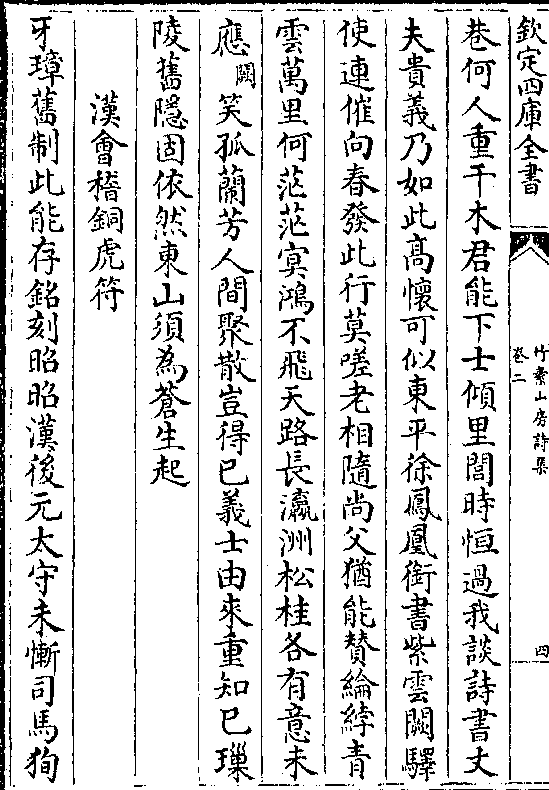 欽定四庫全書
竹素山房詩集
卷二
四
巷何人重干木君能下士傾里閭時恒過我談詩書丈
夫貴義乃如此高懷可似東平徐鳳凰銜書紫雲闕驛
使連催向春發此行莫嗟老相隨尚父猶能贊綸綍青
雲萬里何茫茫寞鴻不飛天路長瀛洲松桂各有意未
應闕笑孤蘭芳人間聚散豈得已義士由來重知已璅
陵舊隱固依然東山須為蒼生起
漢會稽銅虎符
牙璋舊制此能存銘刻昭昭漢後元太守未慚司馬狥